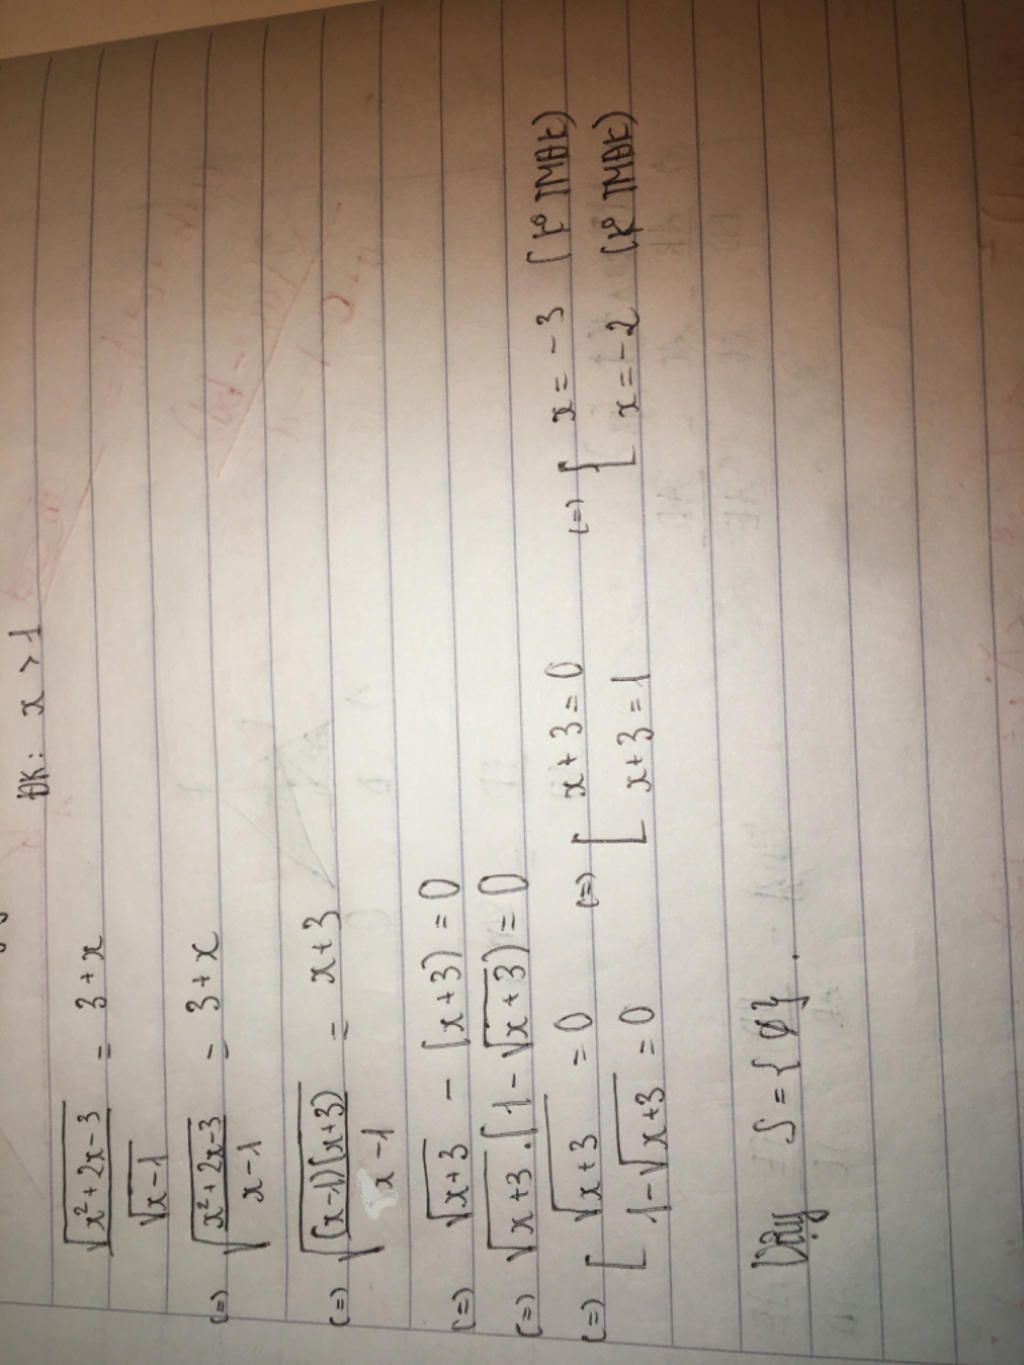 ĐK: x > 1
√(x²+2x-3) / √(x-1) = 3+x
(=) √((x²+2x-3)/(x-1)) = 3+x
(=) √((x-1)(x+3)/(x-1)) = x+3
(=) √(x+3) - (x+3) = 0
(=) √(x+3) . (1 - √(x+3)) = 0
(=) [ √(x+3) = 0 (=) [ x+3 = 0 (=) [ x = -3 (k° TMĐK)
1-√(x+3) = 0 x+3 = 1 x = -2 (k° TMĐK)
Vậy S = {∅}.